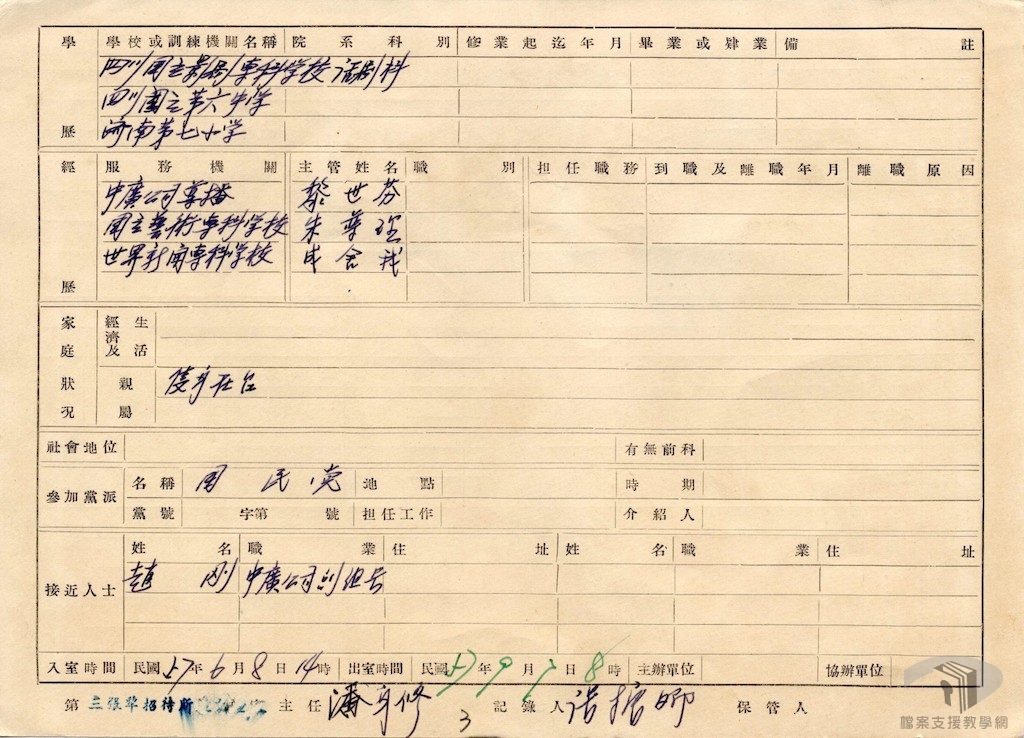 學 學校或訓練機關名稱 院系科別 修業起迄年月 畢業或肄業 備註
四川國立劇專科学校 话剧科
四川國立第六中学
歷 济南第七小学
經 服務機關 主管姓名 職別 担任職務 到職及離職年月 離職原因
中廣公司導播 黎世芬
国立藝術專科学校 朱尊
世界新闻專科学校 成舍我
歷
家 經濟及生活
庭
狀 親 隻身在台
況 屬
社會地位 有無前科
參加黨派 名稱 国民党 地點 時期
黨號 字第 號 担任工作 介紹人
姓名 職業 住址 姓名 職業 住址
接近人士 趙刚 中廣公司副组长
入室時間 民國57年6月8日14時 出室時間 民國57年9月7日8時 主辦單位 協辦單位
第 三張犂招待所 主任 潘 修 3 記錄人 保管人
檔案支援教學網